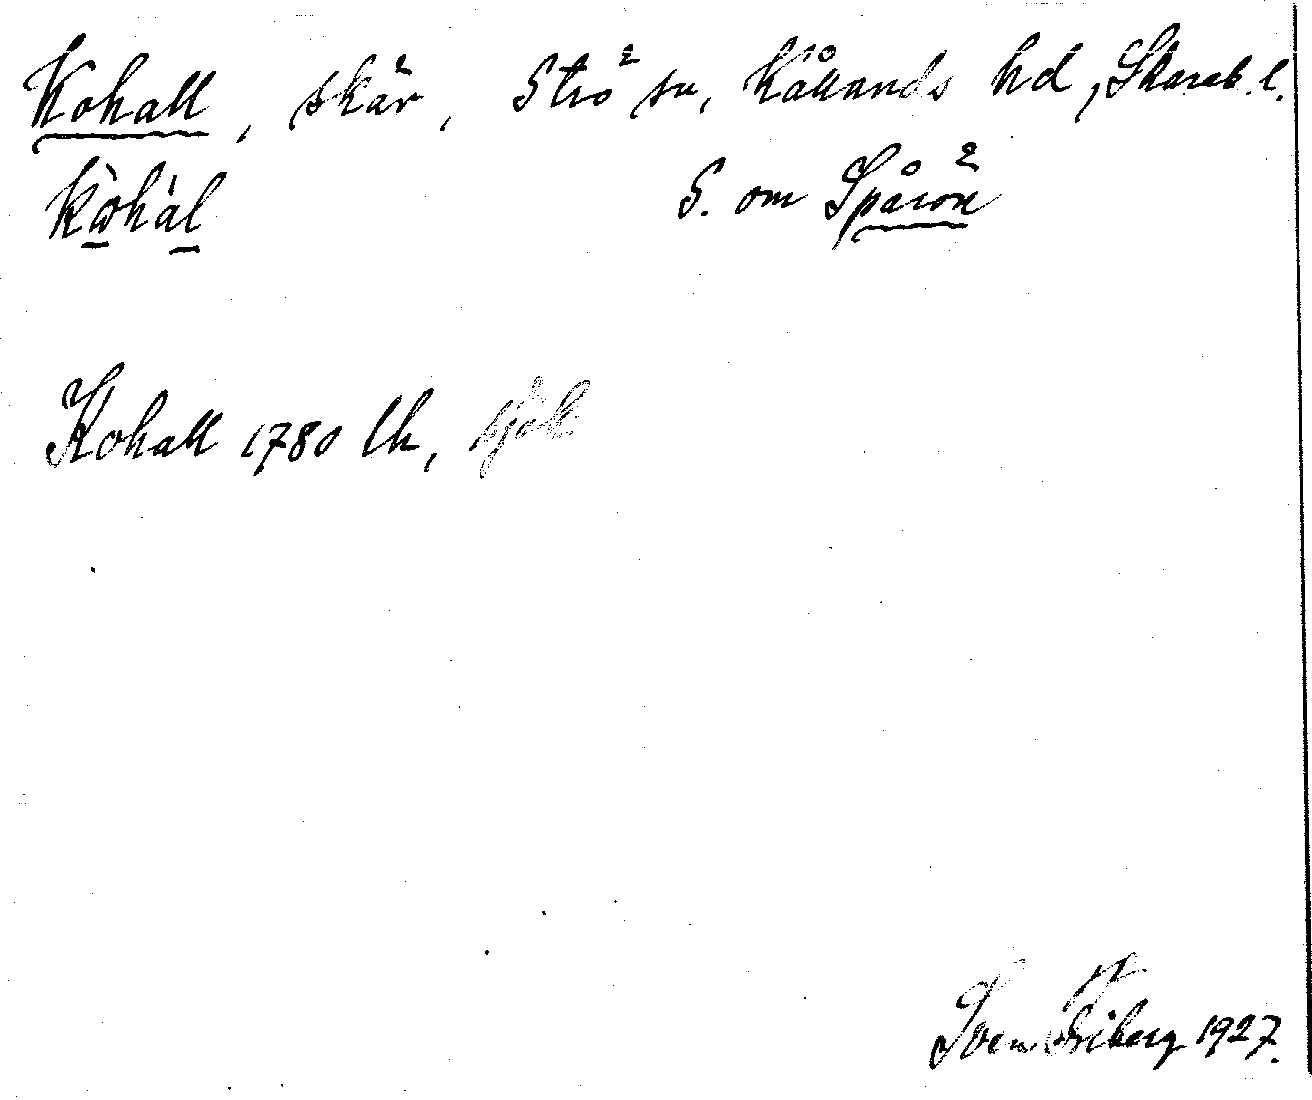 Kohall, skär, Strö sn, Kållands hd, Skarab. l.
kòhàl S. om Spårön
Kohall 1780 lh, sjök.
Sven Friberg 1927.